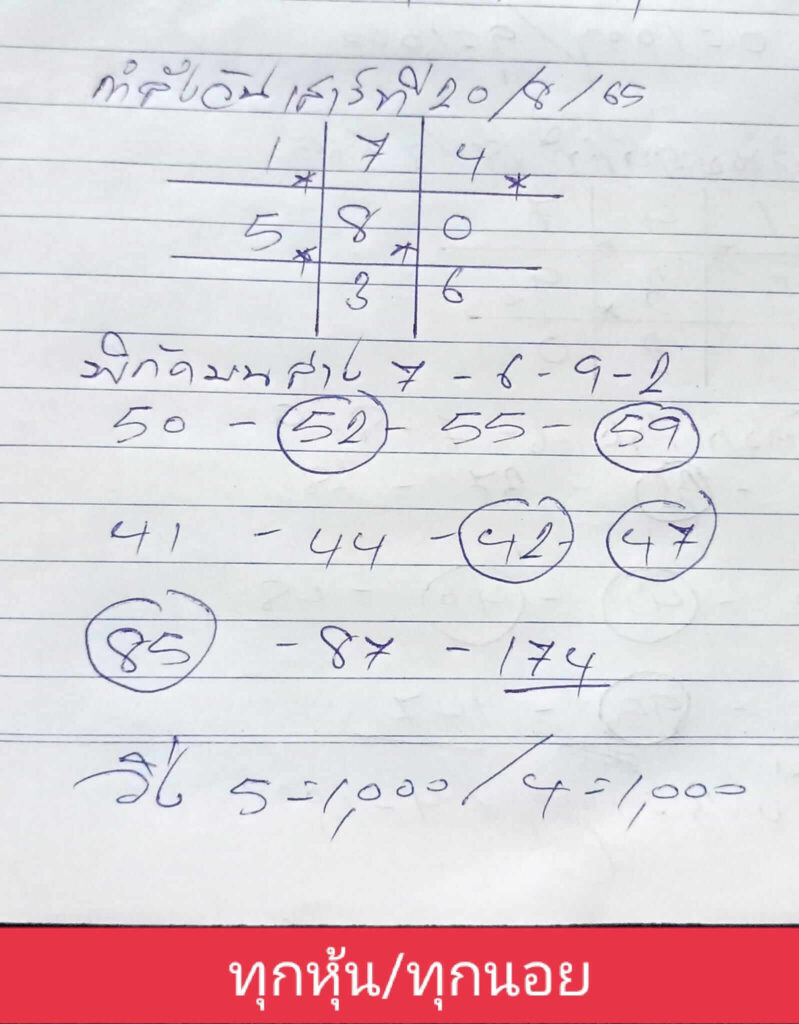 กำลังวันเสาร์ที่ 20/8/65
1* 7 4*
5* 8* 0
3 6
พิกัดบน ล่าง 7 - 6 - 9 - 2
50 - 52 - 55 - 59
41 - 44 - 42 - 47
85 - 87 - 174
วิ่ง 5 = 1,000 / 4 = 1,000
ทุกหุ้น/ทุกนอย